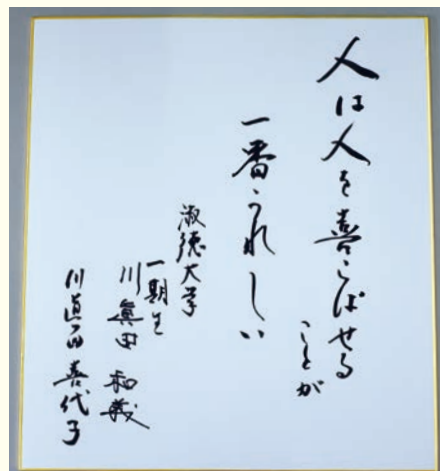 人は人を喜こばせる
ことが
一番うれしい
淑徳大学
一期生
川眞田和義
川眞田喜代子